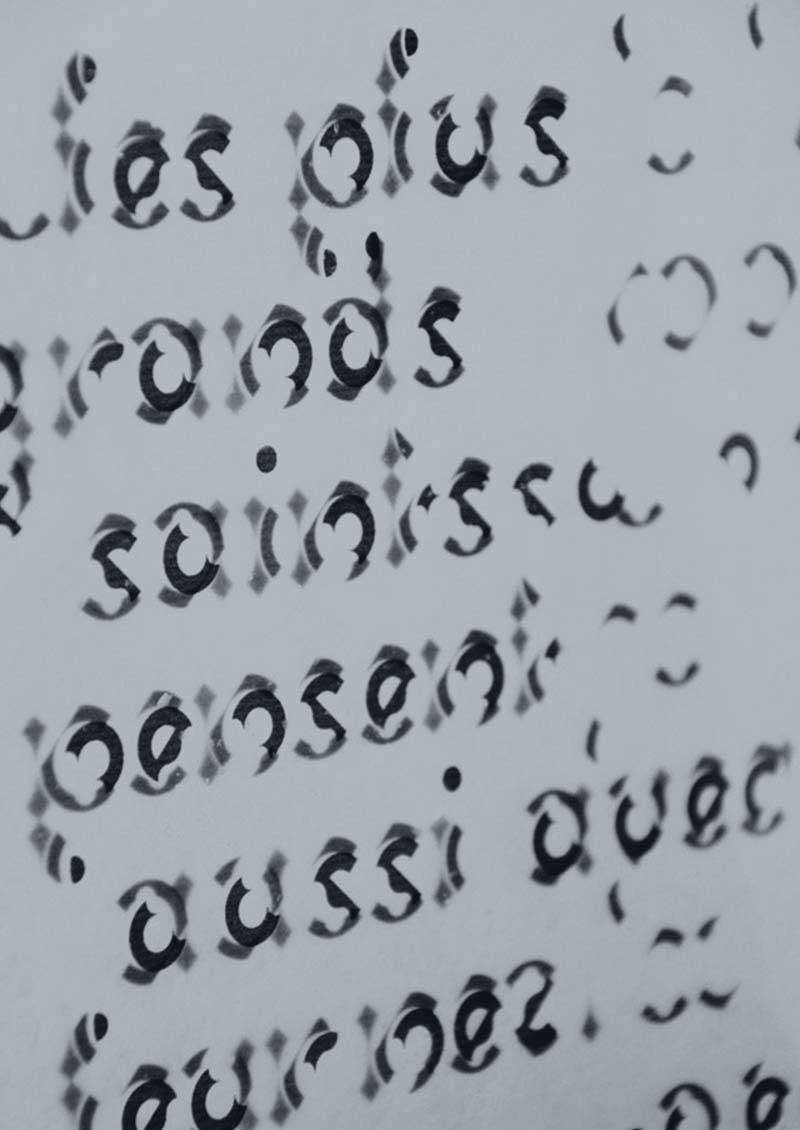 les plus
grands
saints se
pensent
aussi avec
leur nez.